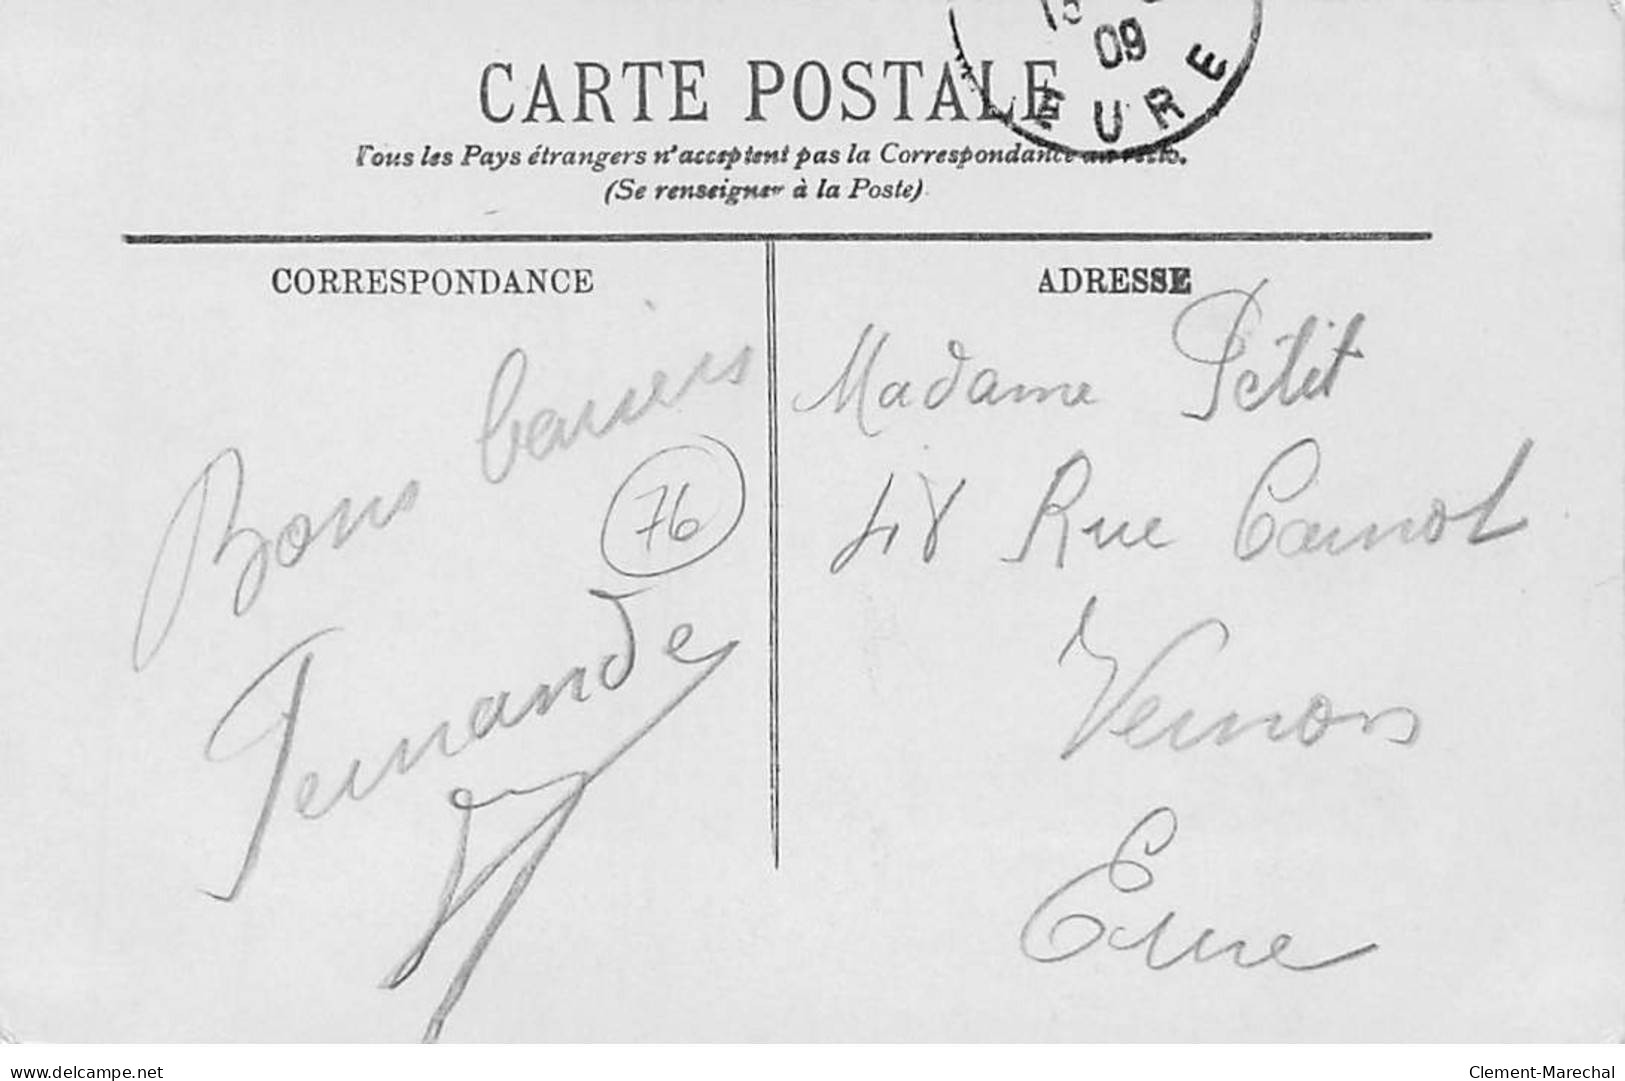 09
EURE
CARTE POSTALE
Tous les Pays étrangers n'acceptent pas la Correspondance au recto.
(Se renseigner à la Poste)
CORRESPONDANCE
Bons baisers
76
Fernande
ADRESSE
Madame Petit
48 Rue Carnot
Vernon
Eure
delcampe.net
Clement-Marechal